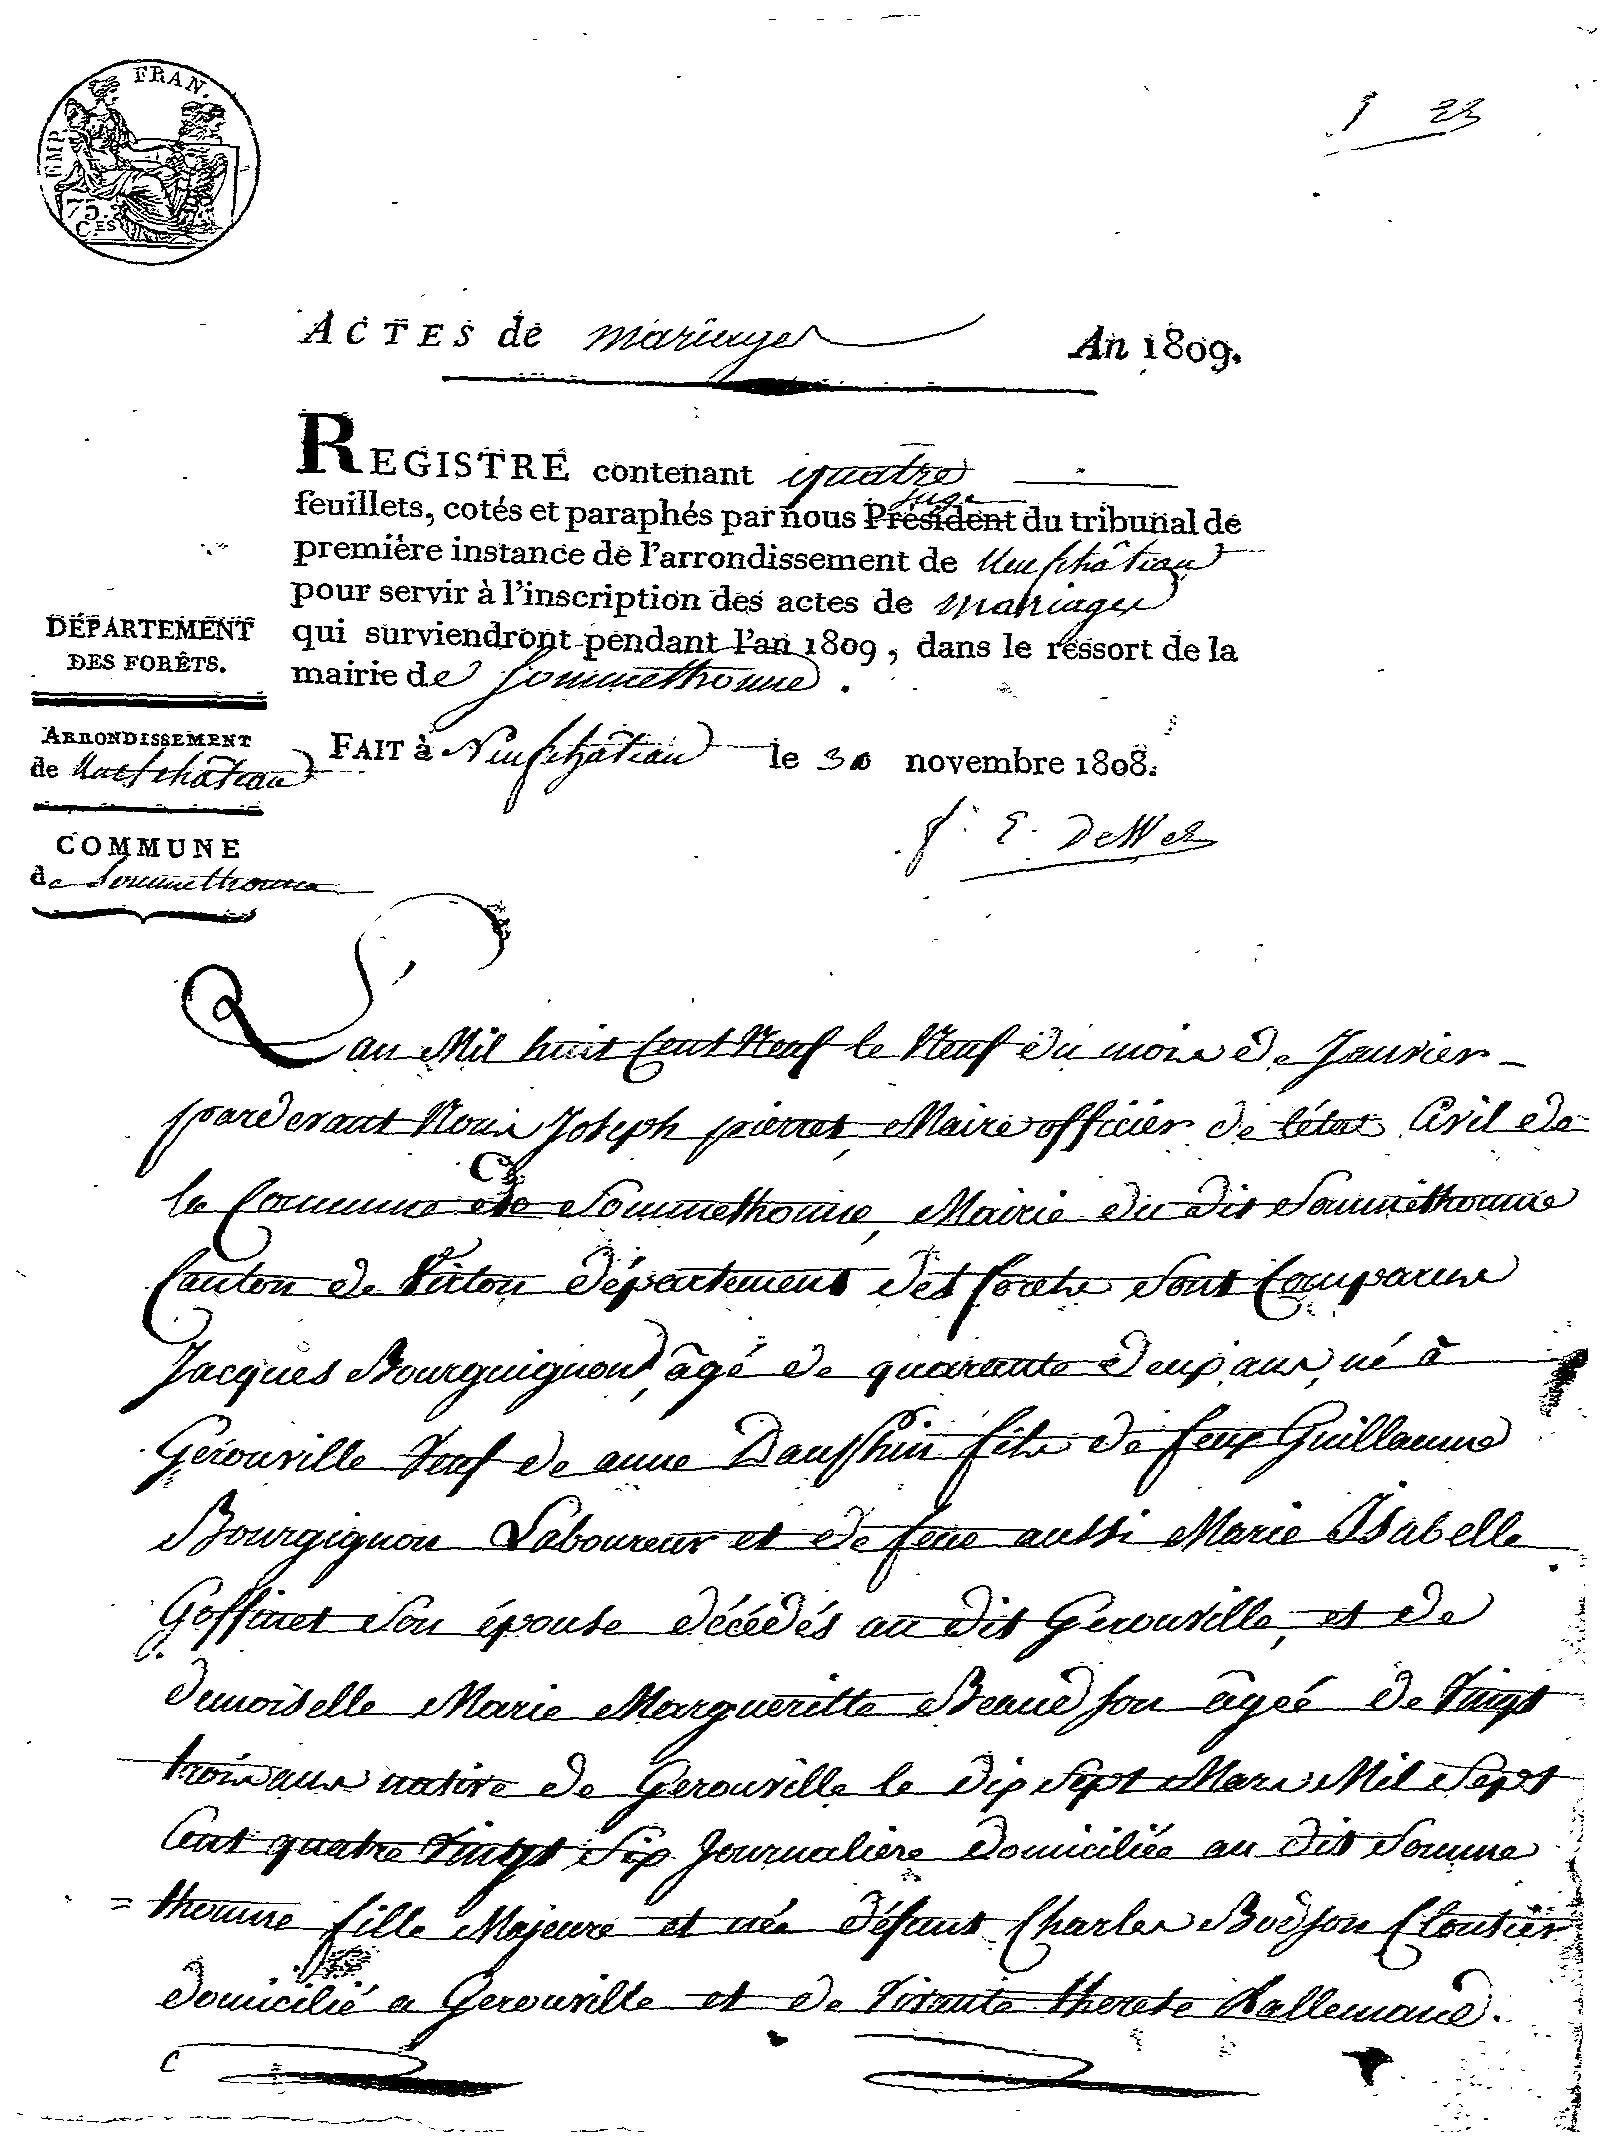 EMP. FRAN.
75. CES
1 23
ACTES de mariages An 1809.
REGISTRE contenant quatre
juge
feuillets, cotés et paraphés par nous Président du tribunal de
première instance de l'arrondissement de Neufchâteau
pour servir à l'inscription des actes de mariages
qui surviendront pendant l'an 1809, dans le ressort de la
mairie de Sommethonne.
FAIT à Neufchâteau le 30 novembre 1808.
DÉPARTEMENT
DES FORÊTS.
ARRONDISSEMENT
de Neufchâteau
COMMUNE
de Sommethonne
L'an Mil huit Cent Neuf le Neuf du mois de Janvier
pardevant Nous Joseph pierret, Maire officier de l'état Civil de
la Commune de Sommethonne, Mairie du dit Sommethonne
Canton de Virton département des forets sont Comparus
Jacques Bourguignon, âgé de quarante deux ans, né à
Gérouville Veuf de anne Dauphin fils de feux Guillaume
Bourgignon Laboureur et de feue aussi Marie Isabelle
Goffinet son épouse décédés au dit Gerouville, et de
demoiselle Marie Margueritte Beaudson âgée de Vingt
trois ans native de Gerouville le dix Sept Mars Mil Sept
Cent quatre Vingt Six Journalière domiciliée au dit Somme
=thonne fille Majeure et née défunt Charles Bodson Cloutier
domicilié a Gerouville et de Vivante therese Lallemand.